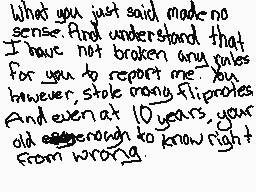 What you just said made no
sense. And understand that
I have not broken any rules
for you to report me. You
however, stole many flipnotes
And even at 10 years, your
old enough to know right
from wrong.